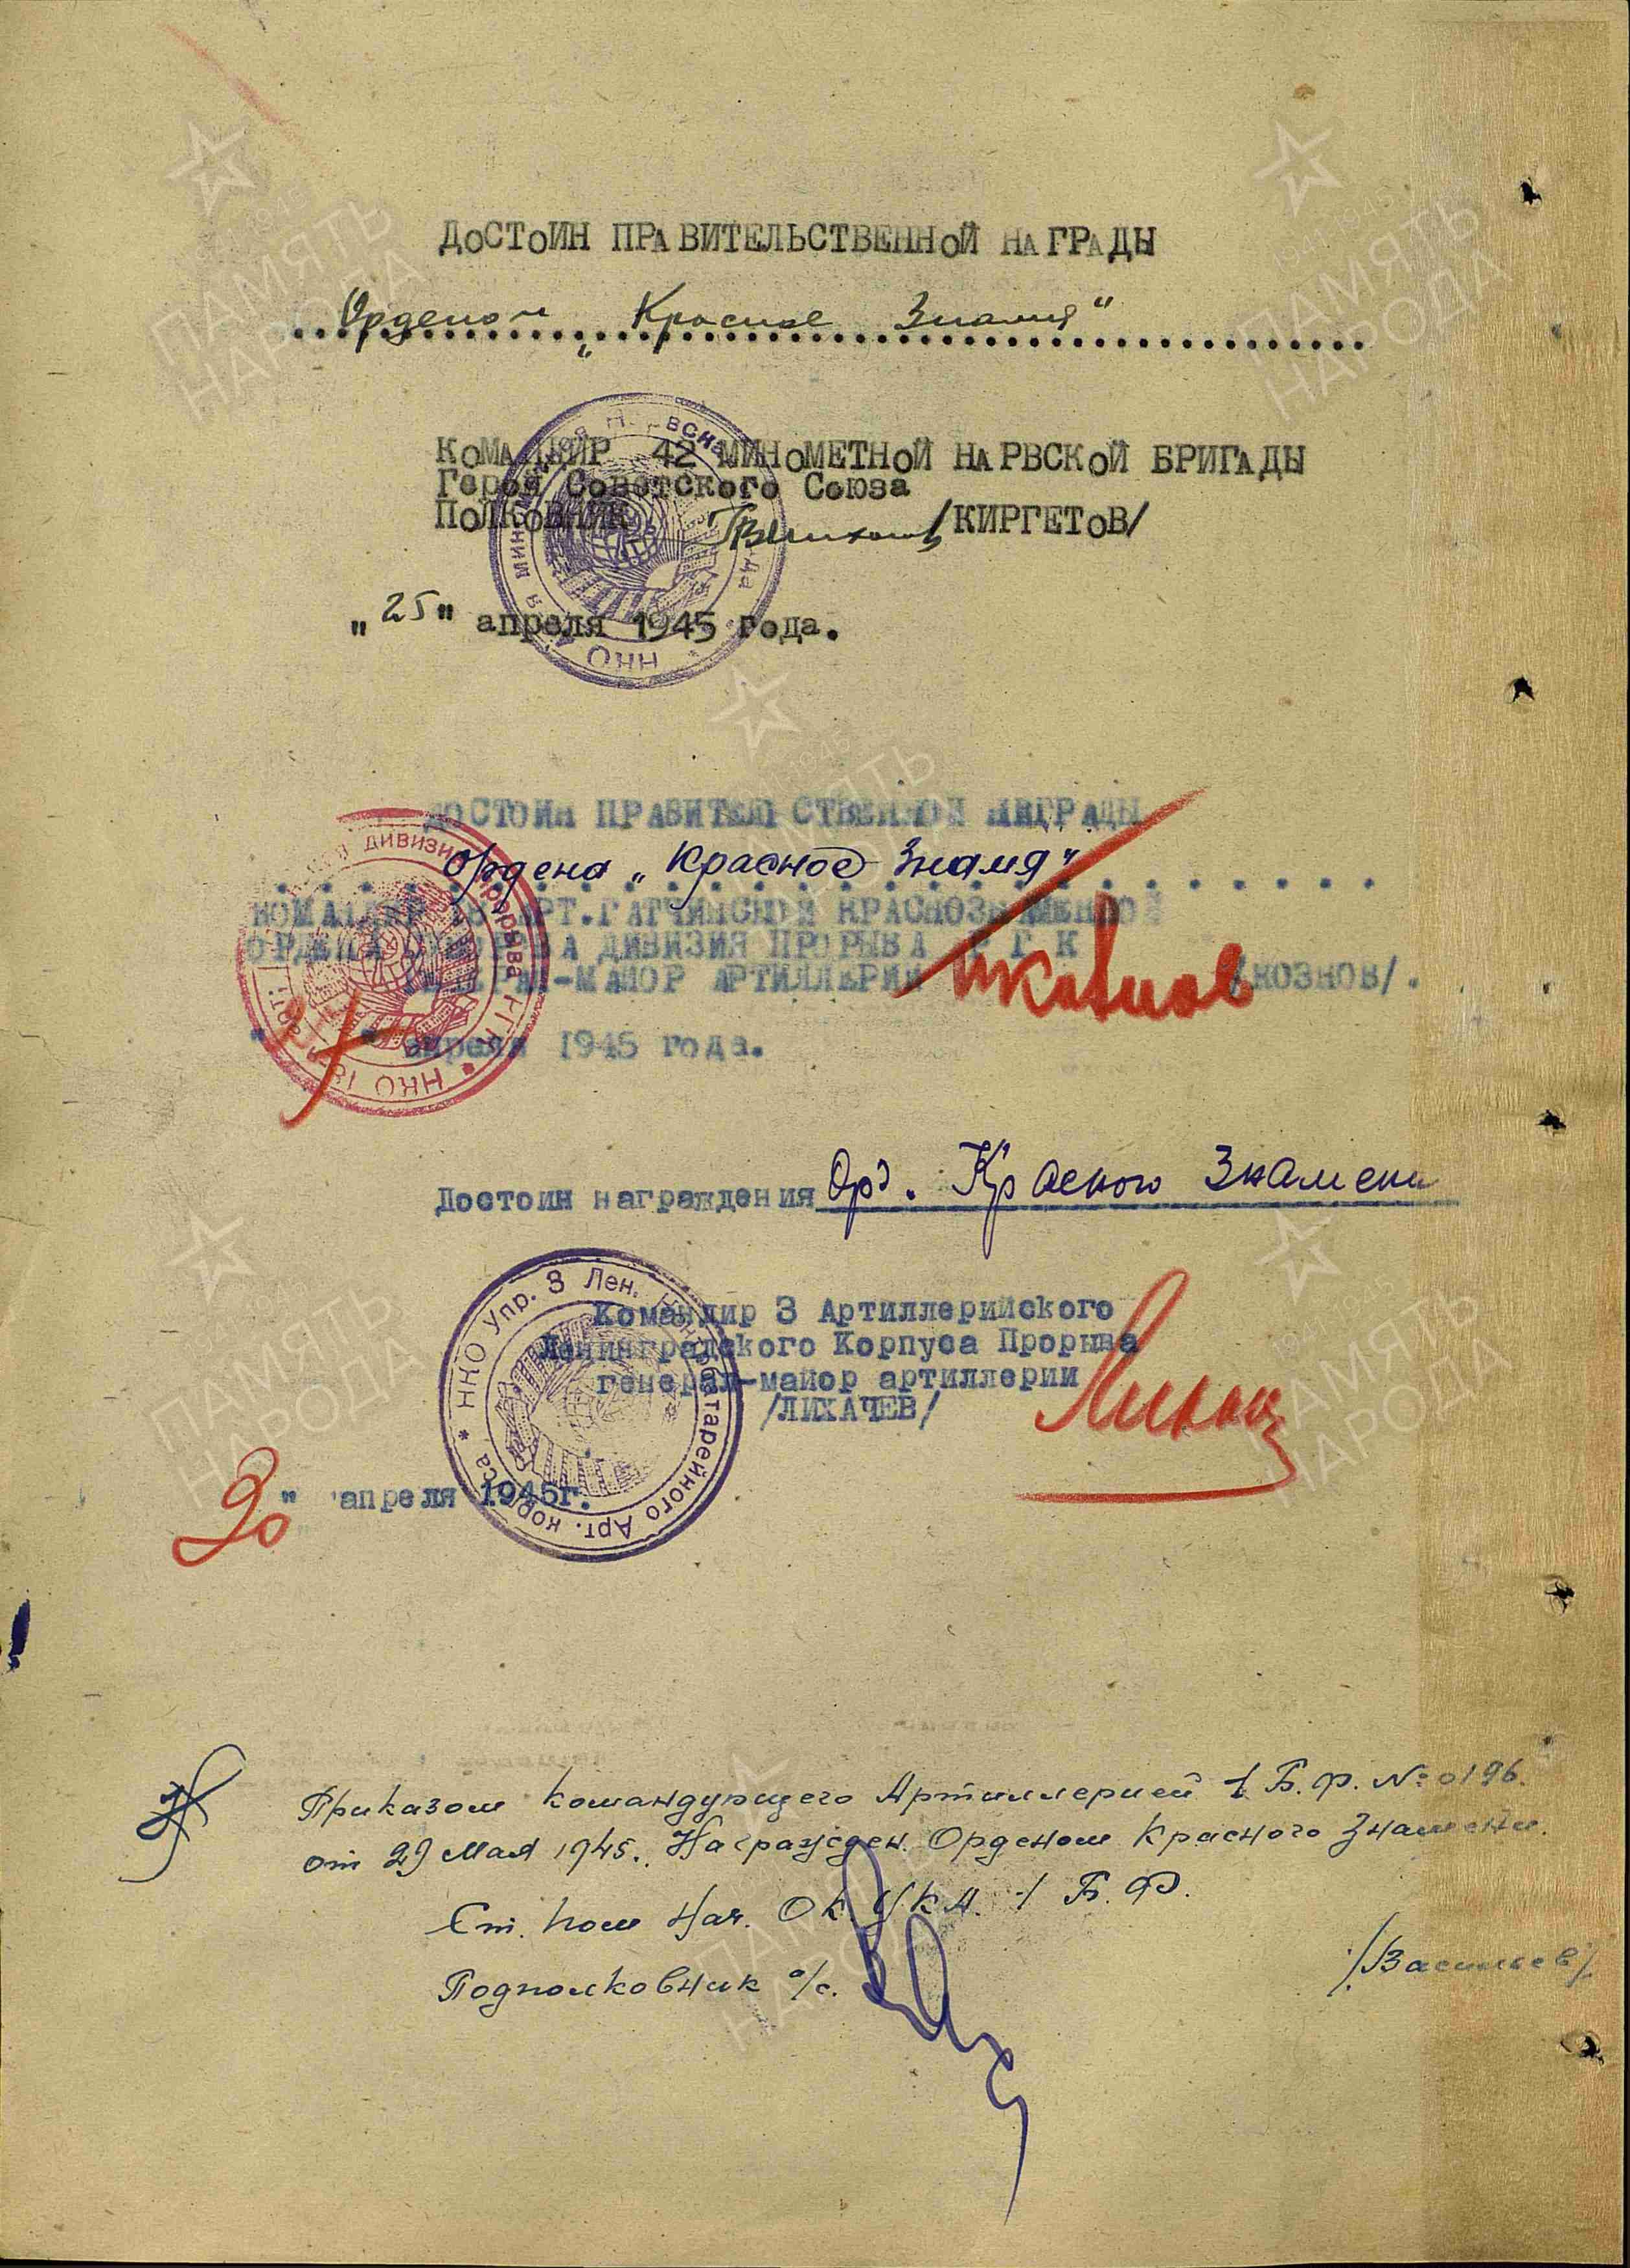 ДОСТОИН ПРАВИТЕЛЬСТВЕННОЙ НАГРАДЫ
Орденом „Красное Знамя“
КОМАНДИР 42 МИНОМЕТНОЙ НАРВСКОЙ БРИГАДЫ
Герой Советского Союза
ПОЛКОВНИК /КИРГЕТОВ/
„25" апреля 1945 года.
ДОСТОИН ПРАВИТЕЛЬСТВЕННОЙ НАГРАДЫ
Ордена „Красное Знамя“
КОМАНДИР 18 АРТ. ГАТЧИНСКОЙ КРАСНОЗНАМЕННОЙ
ОРДЕНА СУВОРОВА ДИВИЗИЯ ПРОРЫВА Р Г К
ГЕНЕРАЛ-МАЙОР АРТИЛЛЕРИИ КОЗНОВ/.
" " апреля 1945 года.
Достоин награждения Орд. Красного Знамени
Командир 3 Артиллерийского
Ленинградского Корпуса Прорыва
генерал-майор артиллерии
/ЛИХАЧЕВ/
НКО Упр. 3 Лен. Контрбатарейного Арт. корпуса *
30" апреля 1945г.
Приказом командующего Артиллерией 1 Б. Ф. № 0196.
от 29 Мая 1945. Награжден. Орденом Красного Знамени.
Ст. пом Нач. ОК. УКА. 1 Б. Ф.
Подполковник а/с. /Васильев/
ПАМЯТЬ
НАРОДА